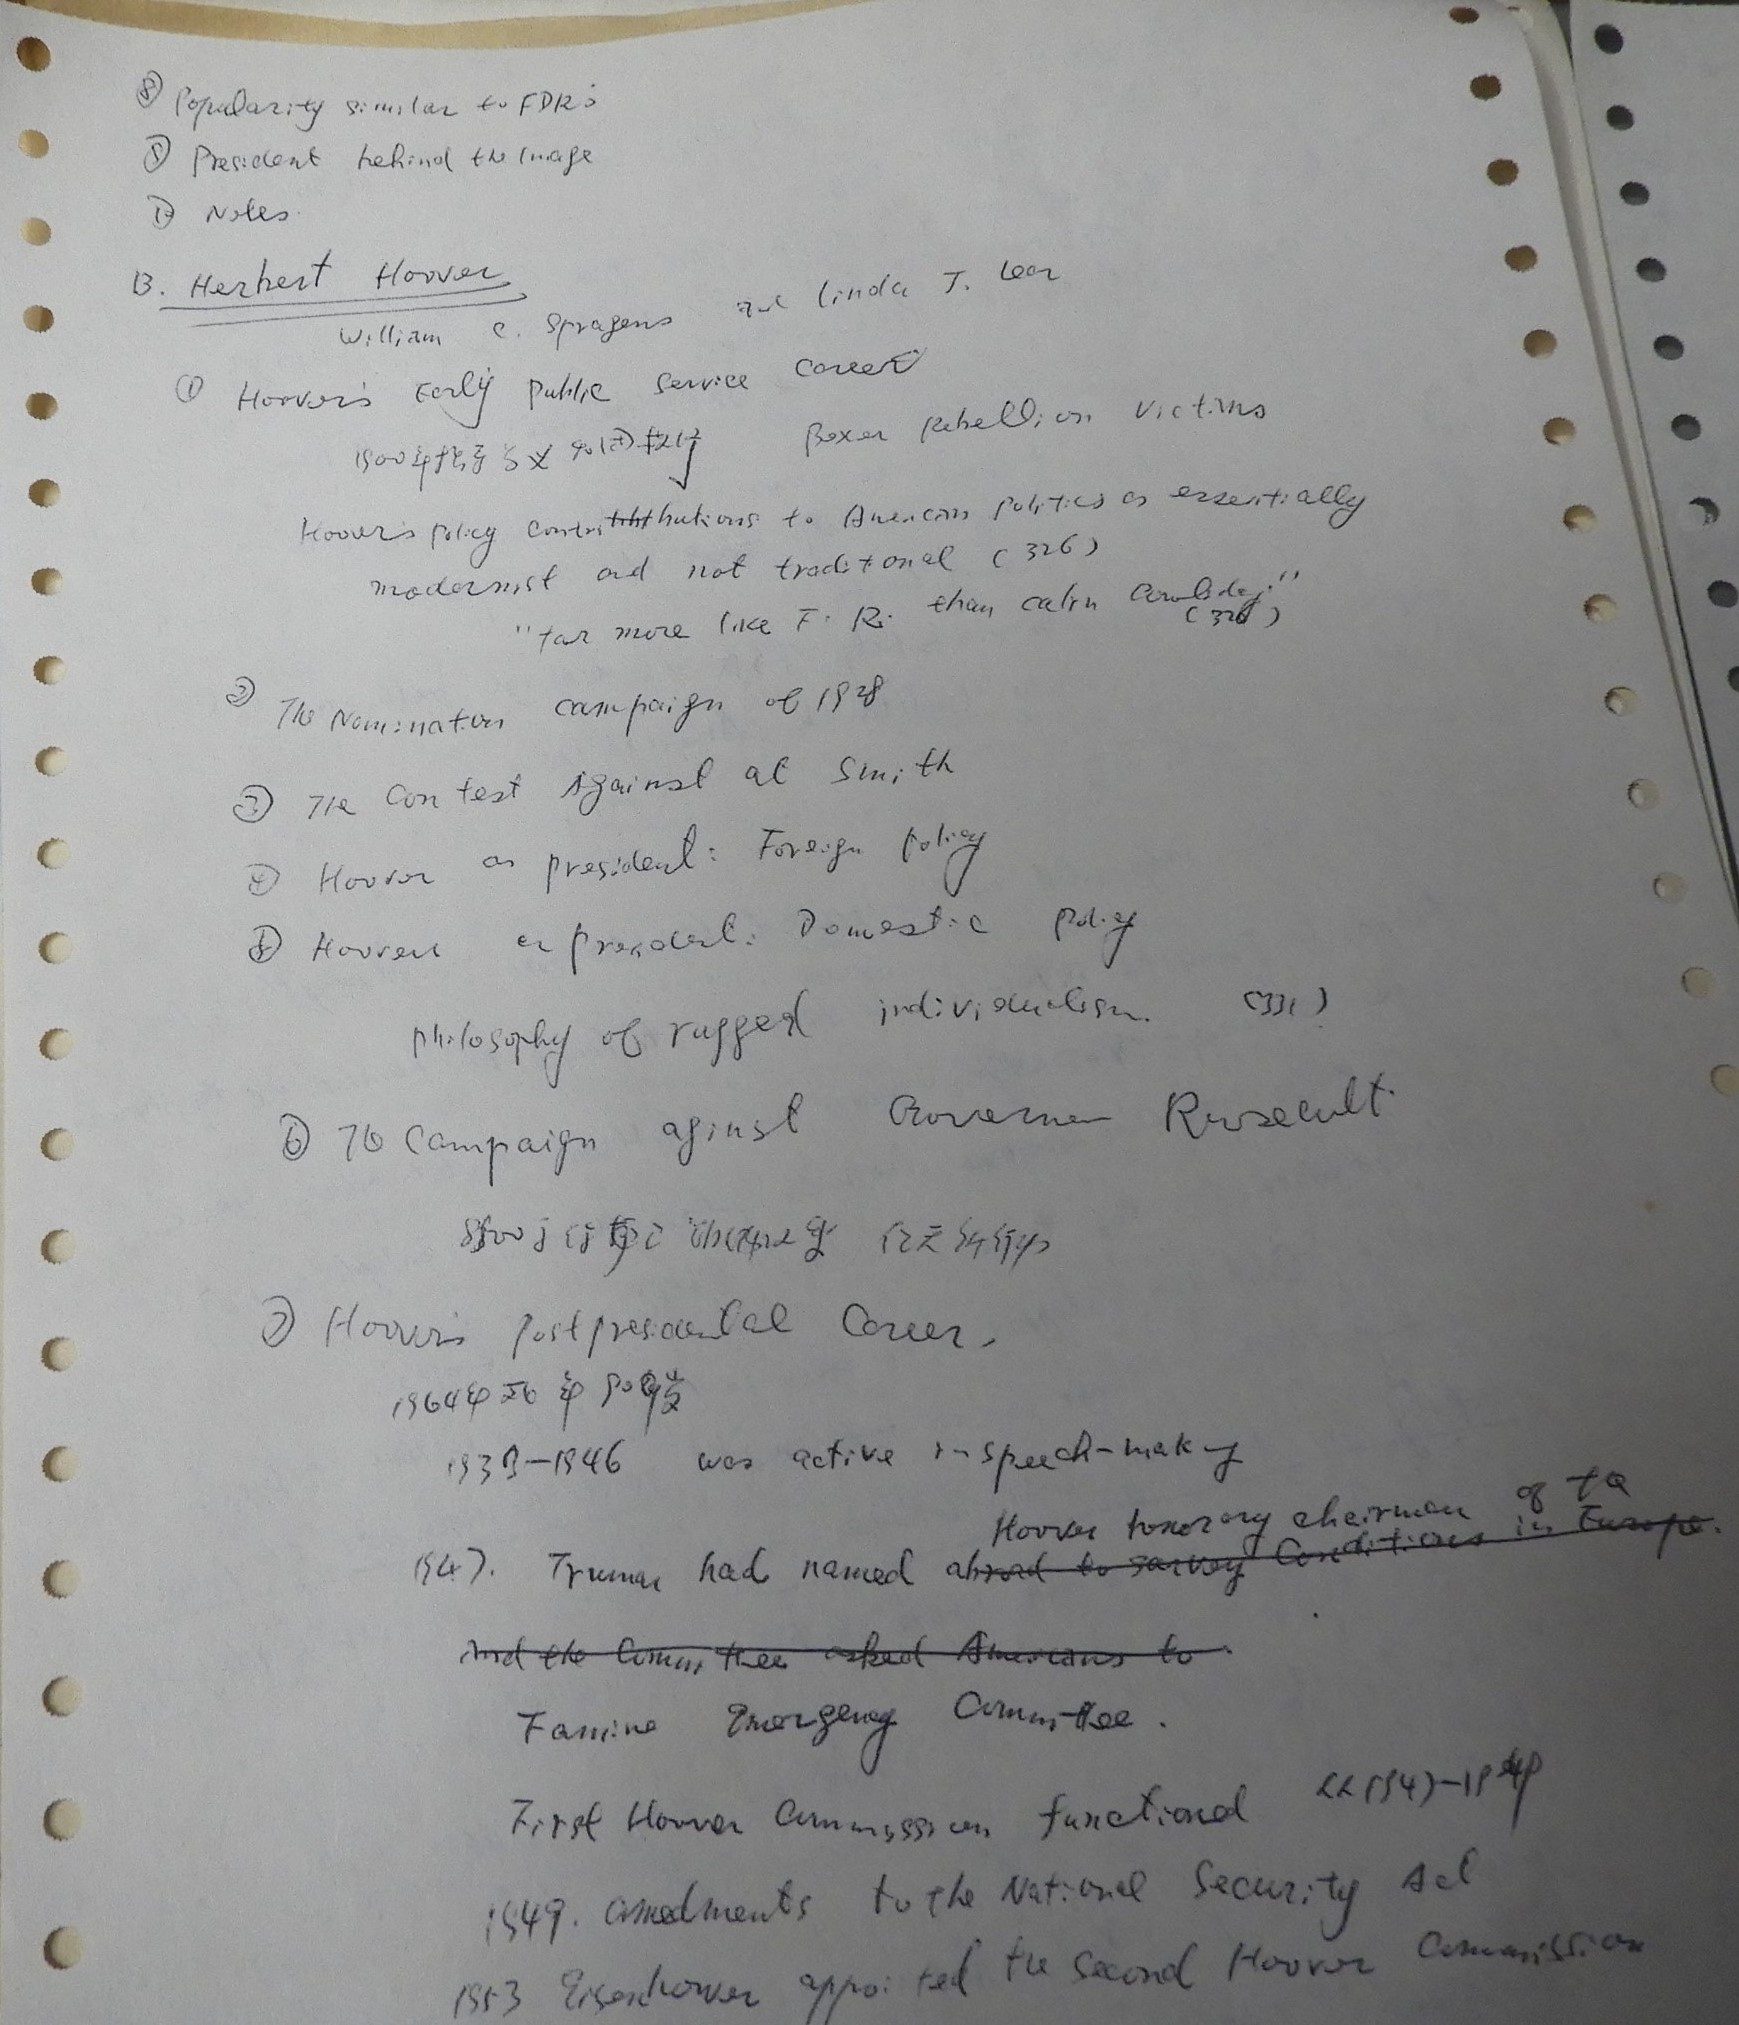 ⑧ Popularity similar to FDR's
⑨ President behind the Image
⑩ Notes
B. Herbert Hoover
William C. Spragens and Linda J. Lear
① Hoover's Early public service career
1900年 Boxer Rebellion victims
Hoover's policy contributions to American politics as essentially
modernist and not traditonal (326)
"far more like F. R. than calvin Coolidge."
(326)
② The Nomination campaign of 1928
③ The Contest Against al Smith
④ Hoover as president: Foreign policy
⑤ Hoover as president: Domestic policy
philosophy of rugged individualism. (331)
⑥ The Campaign aginst Governor Roosevelt.
⑦ Hoover's postpresidental Career.
1964年 年90歳
1933-1946 was active in speech-making
Hoover honorary chairman of the
1947. Truman had named abroad to survey Conditions in Europe.
And the Committee asked Americans to
Famine Emergency Committee.
First Hoover Commission functional 1947-1949
1949. amedments to the National Security Act
1953 Eisenhower appointed the Second Hoover Commission